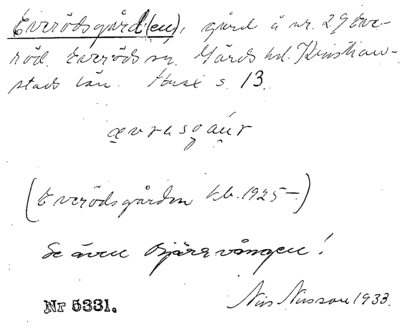 Everödsgård(en), gård å nr. 29 Eve-
röd. Everöds sn. Gärds hd. Kristian-
stads län. Huse s. 13.
(Everödsgården kb. 1925–)
Se även Bjäresvången!
Nr 5331. Nils Nilsson 1933.